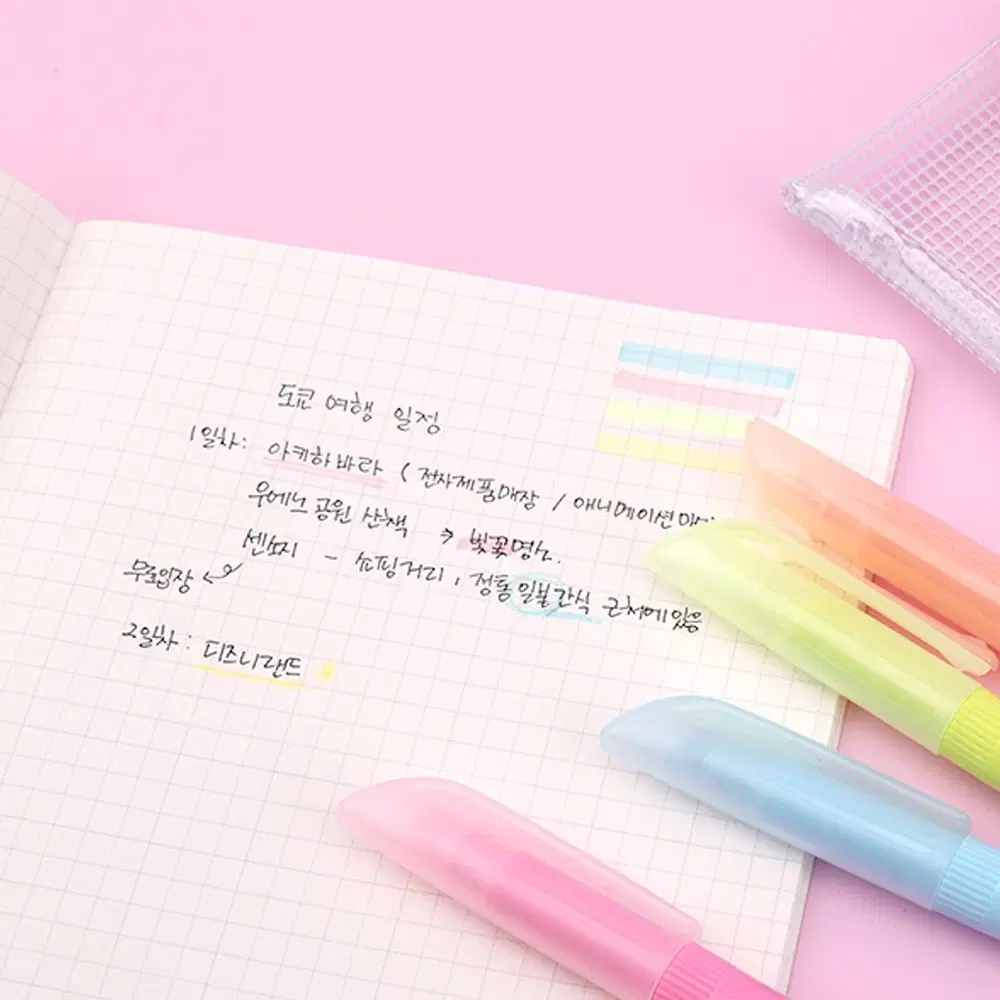 도쿄 여행 일정
1일차: 아키하바라 ( 전자제품매장 / 애니메이션매
우에노 공원 산책 → 벚꽃명소.
센소지 - 쇼핑거리, 정통 일본간식 근처에 있음
무료입장
2일차: 디즈니랜드